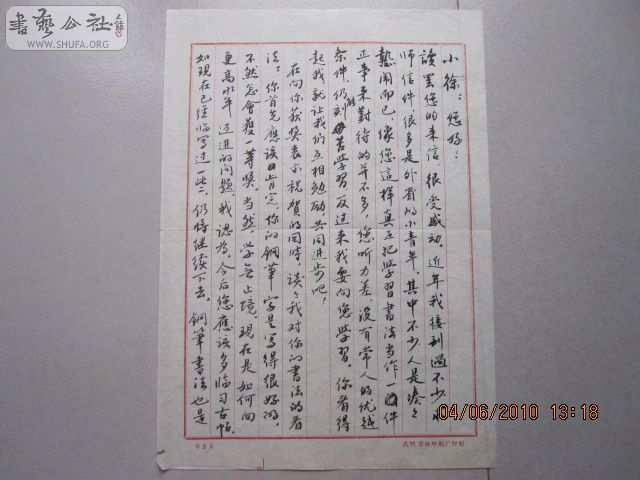 書藝公社
WWW.SHUFA.ORG
小徐：您好！
讀罢您的来信，很受感动。近年我接到過不少求
师信件，很多是外省的小青年，其中不少人是凑々
熱闹而已，像您這样真正把学習書法当作一件
正事来對待的并不多，您听力差，没有常人的优越
条件，仍刻苦学習，反过来我要向您学習。你看得
起我，就让我们互相勉励，共同进步吧！
在向你获奖表示祝贺的同時，谈々我对你的書法的看
法：你首先應該肯定，你的鋼筆字是写得很好的，
不然怎會獲一等奖。当然，学無止境，現在是如何向
更高水平迈进的问题。我認為，今后您應該多临习古帖，
如現在已经临写过一些，仍將继续下去。鋼筆書法也是
925
昆明市 印刷厂印制
04/06/2010 13:18